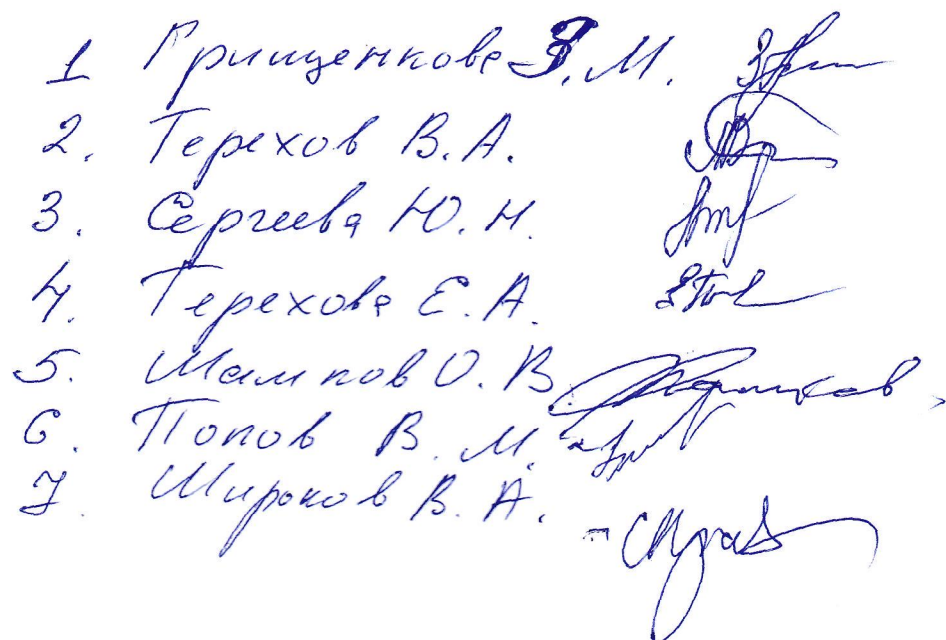 1 Грищенкова З. М.
2. Терехов В. А.
3. Сергеева Ю. Н.
4. Терехова Е. А.
5. О. В.
6. Попов В. М.
7. Широков В. А.